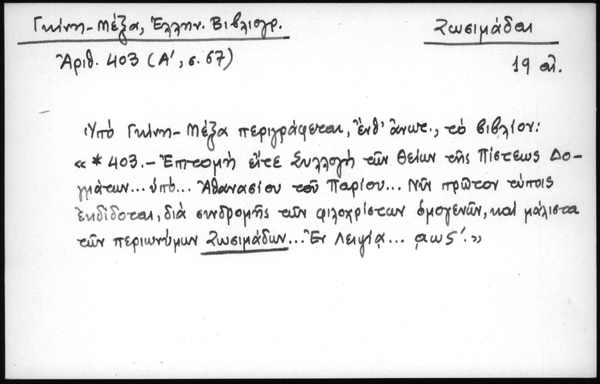 Γκίνη-Μέξα, Ἑλλην. Βιβλιογρ.
Ζωσιμάδαι
Ἀριθ. 403 (Α', σ. 67)
19 αἰ.
Ὑπὸ Γκίνη-Μέξα περιγράφεται, ἔνθ' ἀνωτ., τὸ βιβλίον:
« * 403.- Ἐπιτομὴ εἴτε Συλλογὴ τῶν Θείων τῆς Πίστεως Δο-
γμάτων... ὑπὸ... Ἀθανασίου τοῦ Παρίου... Νῦν πρῶτον τύποις
ἐκδίδοται, διὰ συνδρομῆς τῶν φιλοχρίστων ὁμογενῶν, καὶ μάλιστα
τῶν περιωνύμων Ζωσιμάδων... Ἐν Λειψίᾳ... αωϛ'.»